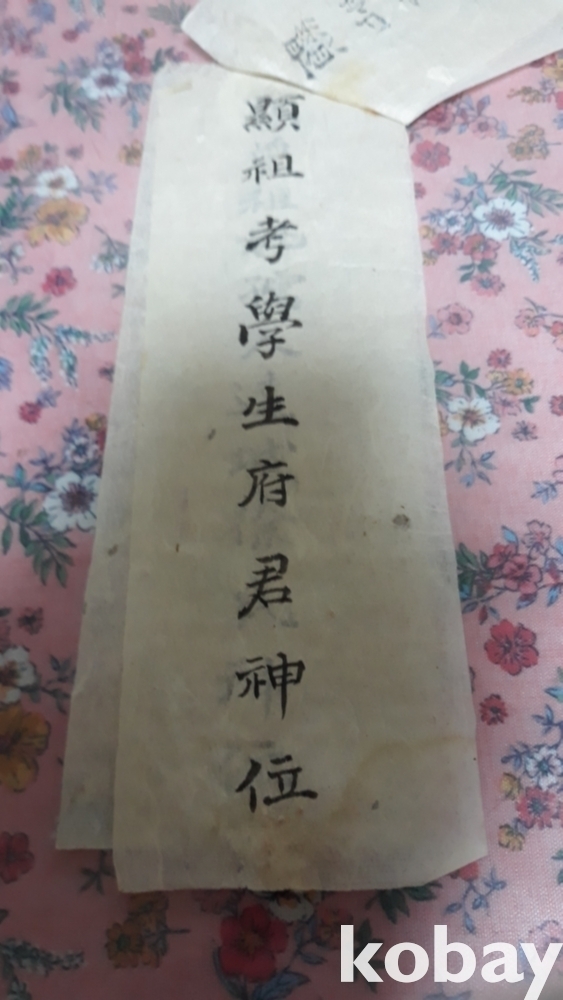 顯祖考學生府君神位
顯
kobay